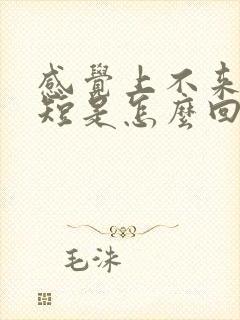 感覺上不來
短是怎麼回
毛洙